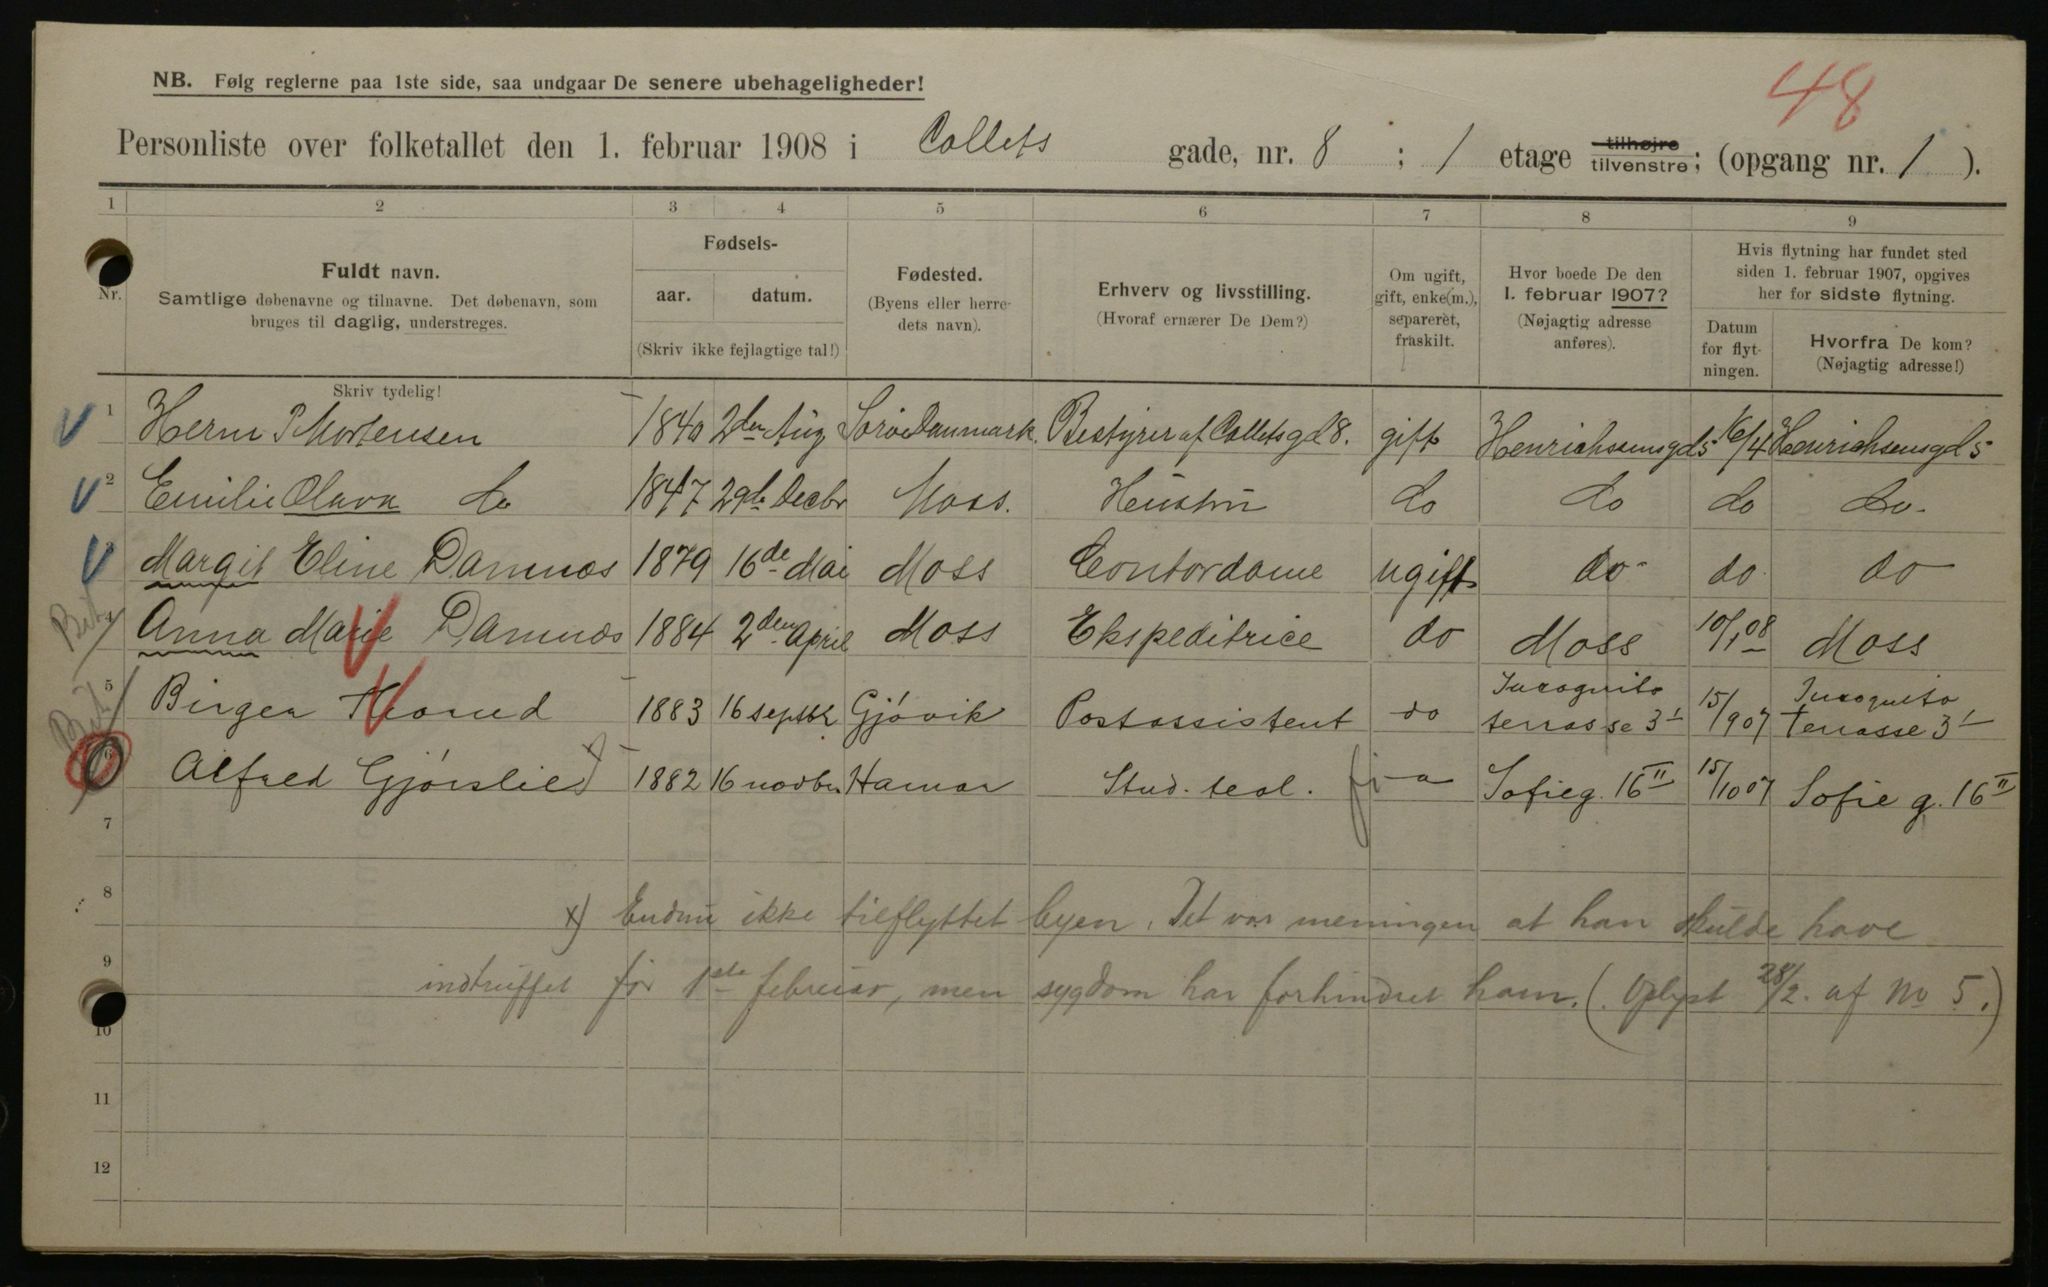 48
NB. Følg reglerne paa 1ste side, saa undgaar De senere ubehageligheder!
Personliste over folketallet den 1. februar 1908 i Collets gade, nr. 8 ; 1 etage tilhøjre tilvenstre; (opgang nr. 1 ).
1 2 3 4 5 6 7 8 9
Nr.
Fuldt navn.
Samtlige døbenavne og tilnavne. Det døbenavn, som
bruges til daglig, understreges.
Skriv tydelig!
Fødsels-
aar. datum.
(Skriv ikke fejlagtige tal!)
Fødested.
(Byens eller herre-
dets navn).
Erhverv og livsstilling.
(Hvoraf ernærer De Dem?)
Om ugift,
gift, enke(m.),
separeret,
fraskilt.
Hvor boede De den
1. februar 1907?
(Nøjagtig adresse
anføres).
Hvis flytning har fundet sted
siden 1. februar 1907, opgives
her for sidste flytning.
Datum
for flyt-
ningen.
Hvorfra De kom?
(Nøjagtig adresse!)
1 Herm P Mortensen 1840 2den Aug Sorø Danmark. Bestyrer af Colletsgd 8. gift Henrichsensgd 5 16/4 Henrichsensgd 5
2 Emilie Olava do 1847 29de Decbr Moss. Hustru do do do do.
3 Margit Eline Damnæs 1879 16de Mai Moss Contordame ugift do do do
Bet
4 Anna Marie Damnæs 1884 2den April Moss Ekspeditrice do Moss 10/1 08 Moss
Bet
5 Birger 1883 16 septbr Gjøvik Postassistent do Incognito terrasse 3 I 15/9 07 Incognito terrasse 3 I
6 Alfred Gjørslie x) 1882 16 novbr. Hamar Stud. teol. Sofieg. 16 II 15/10 07 Sofie g. 16 II
7
8 x) Endnu ikke tilflyttet byen. Det var meningen at han skulde have
9 indtruffet før 1ste februar, men sygdom har forhindret ham. (Oplyst 28/2. af No 5.)
10
11
12